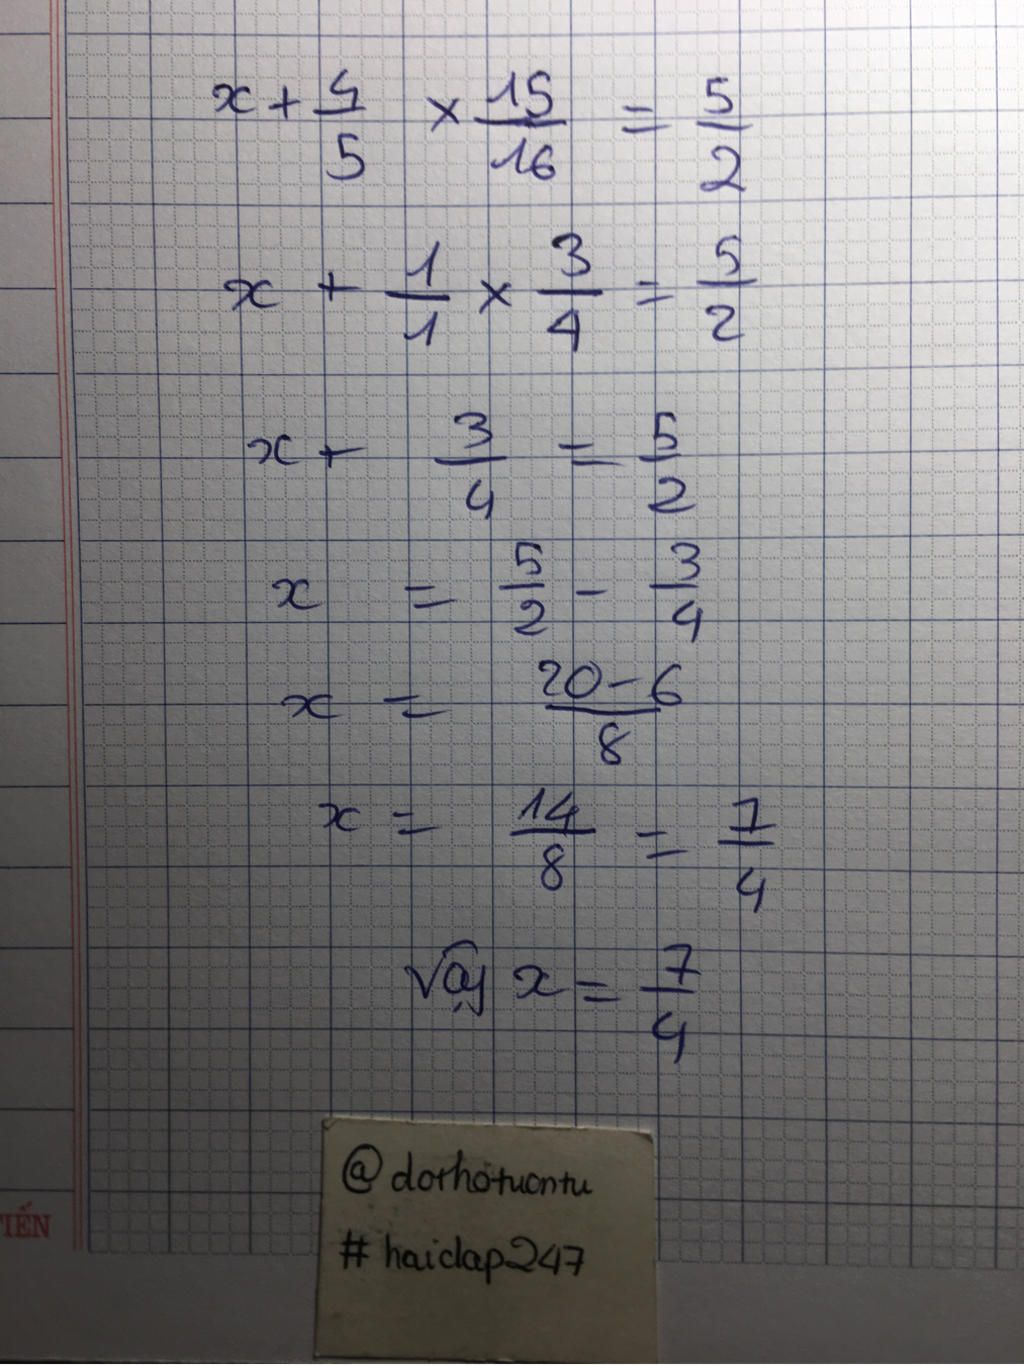 x + 4/5 × 15/16 = 5/2
x + 1/1 × 3/4 = 5/2
x + 3/4 = 5/2
x = 5/2 - 3/4
x = 20-6/8
x = 14/8 = 7/4
Vậy x = 7/4
@dorhotuontu
#haidap247
TIẾN